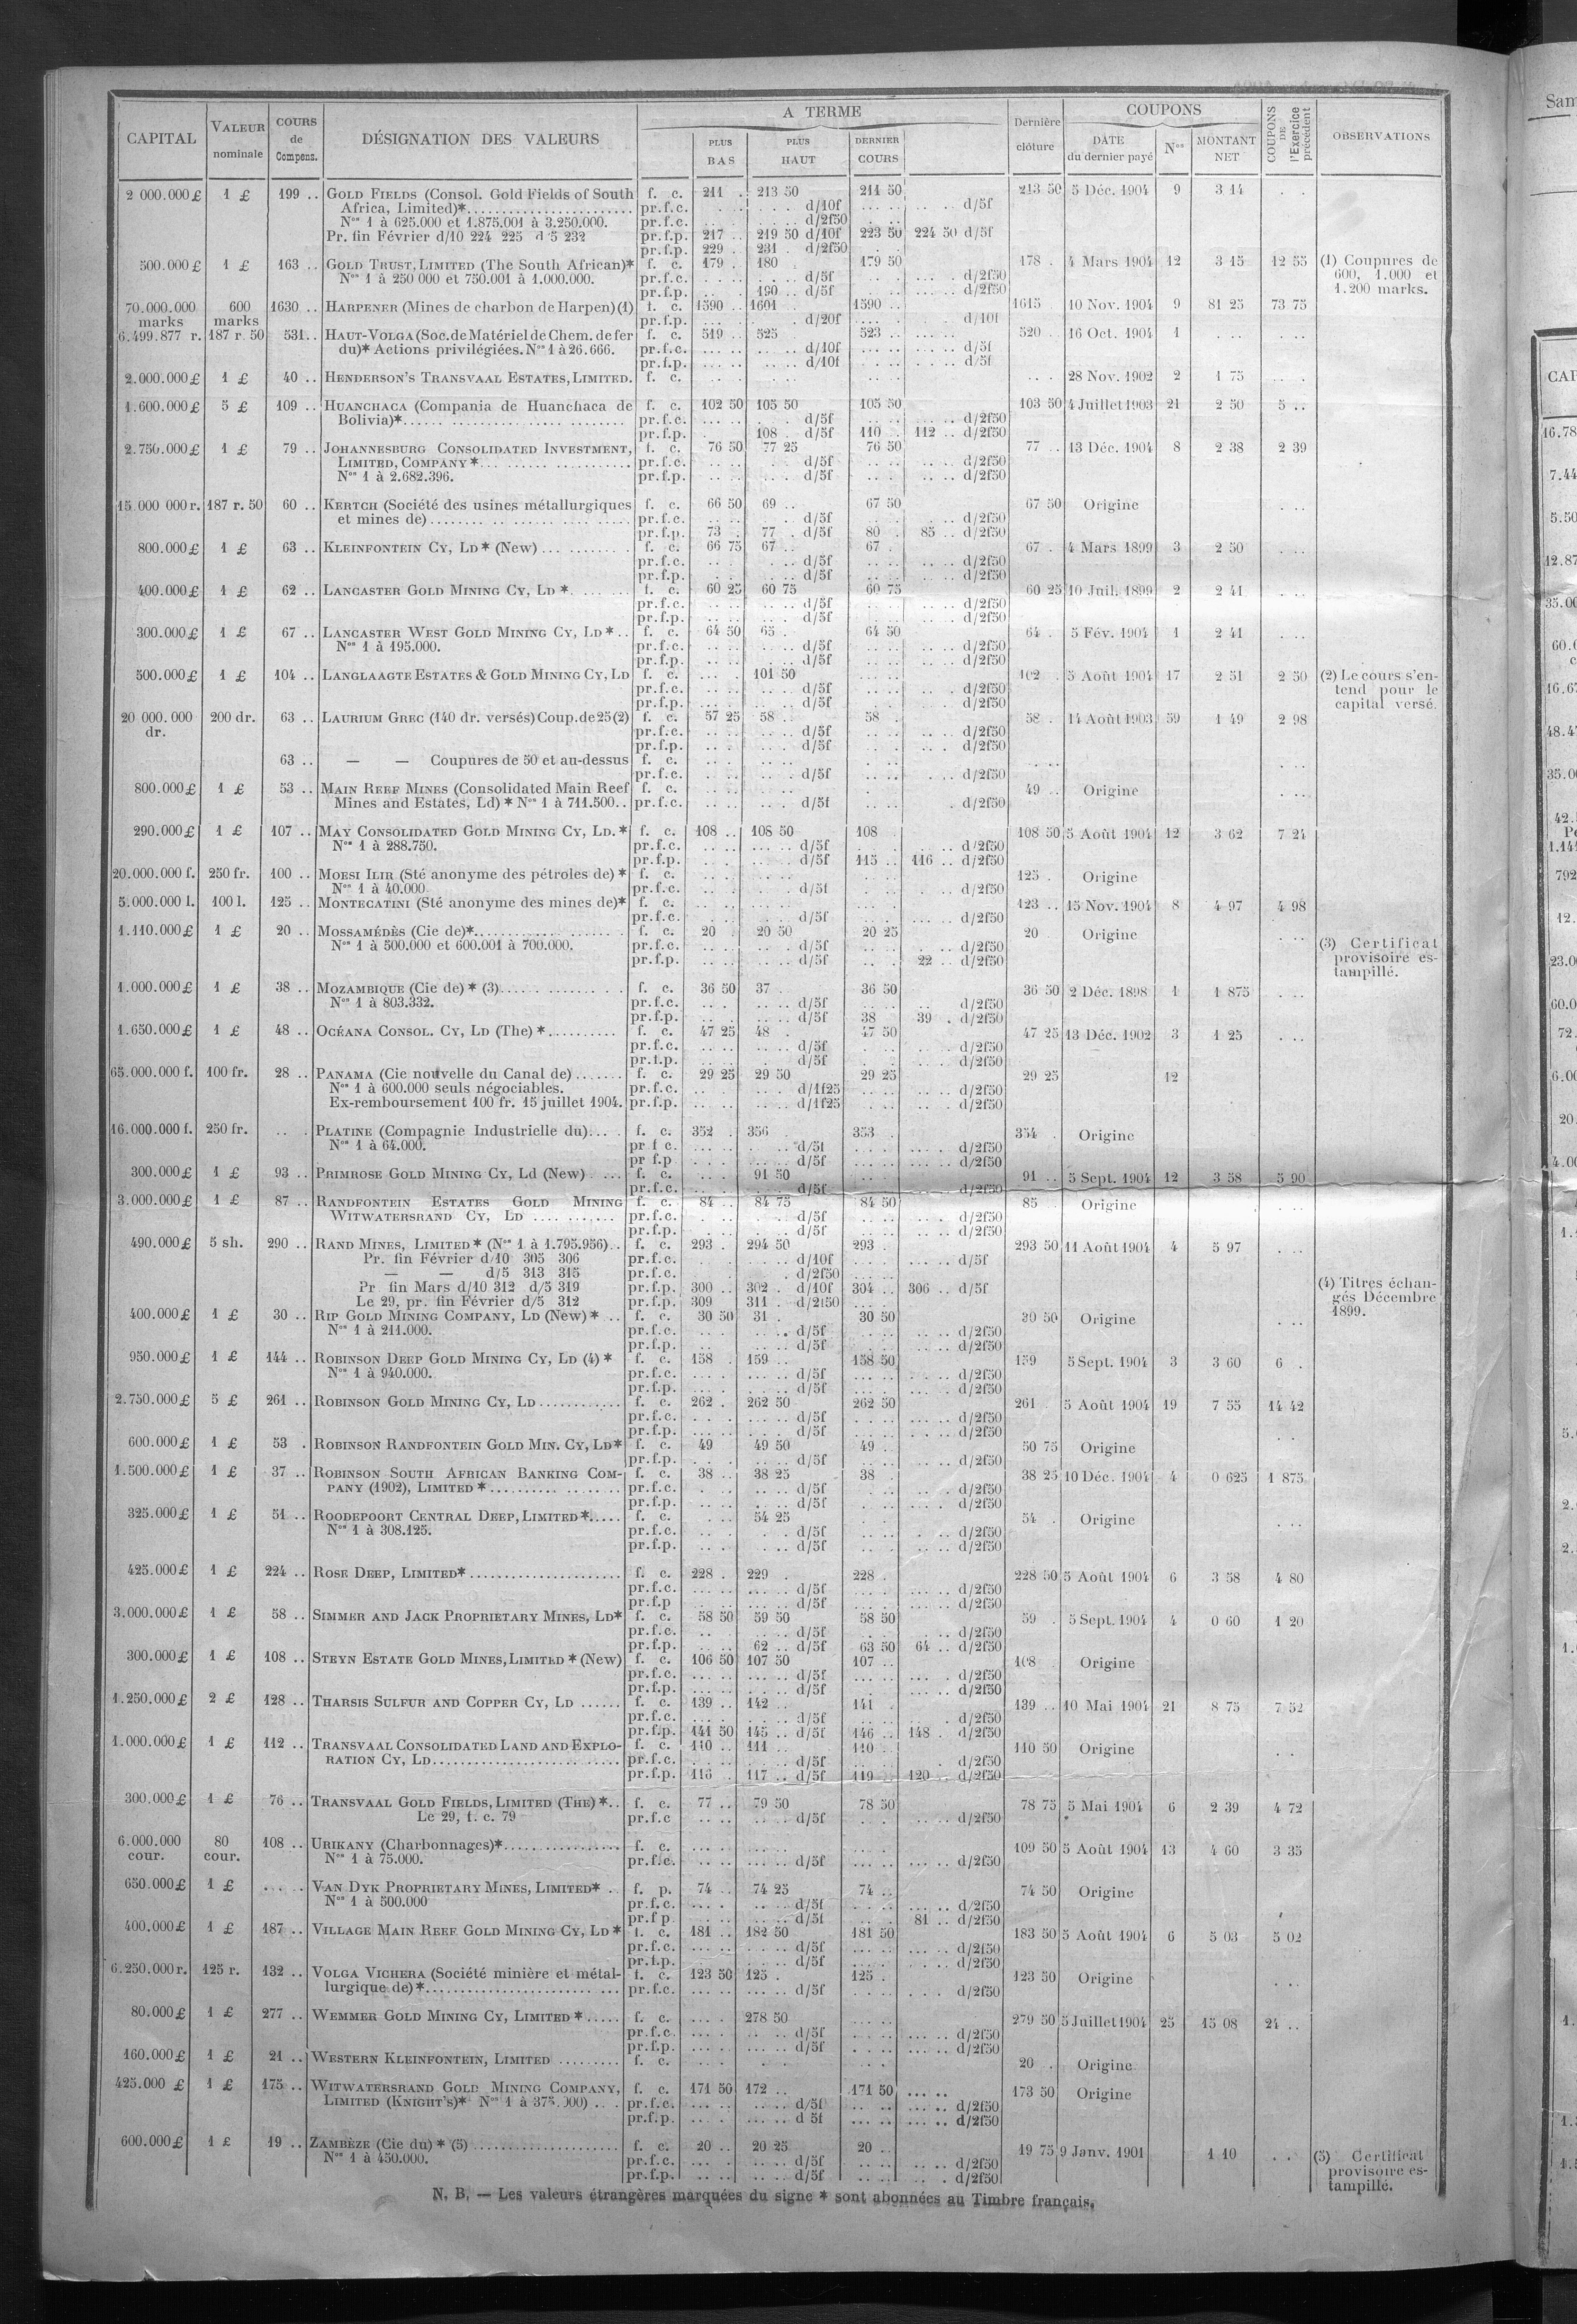 CAPITAL | VALEUR nominale | COURS de Compens. | DÉSIGNATION DES VALEURS | A TERME | PLUS BAS | PLUS HAUT | DERNIER COURS | Dernière clôture | COUPONS | DATE du dernier payé | Nos | MONTANT NET | COUPONS DE l'Exercice précédent | OBSERVATIONS
2 000.000 £ 1 £ 199 .. GOLD FIELDS (Consol. Gold Fields of South f. c. 211 . 213 50 211 50 213 50 5 Déc. 1904 9 3 14 . .
Africa, Limited)* pr.f.c. d/10f d/5f
Nos 1 à 625.000 et 1.875.001 à 3.250.000. pr.f.c. d/2f50
Pr. fin Février d/10 224 225 d/5 232 pr.f.p. 217 .. 219 50 d/10f 223 50 224 50 d/5f
pr.f.p. 229 .. 231 . d/2f50
500.000 £ 1 £ 163 .. GOLD TRUST, LIMITED (The South African)* f. c. 179 . 180 179 50 178 . 4 Mars 1904 12 3 15 12 55 (1) Coupures de
Nos 1 à 250 000 et 750.001 à 1.000.000. pr.f.c. d/5f d/2f50 600, 1.000 et
pr.f.p. 190 .. d/5f d/2f50 1.200 marks.
70.000.000 600 1630 .. HARPENER (Mines de charbon de Harpen) (1) f. c. 1590 .. 1601 . 1590 .. 1615 . 10 Nov. 1904 9 81 25 73 75
marks marks pr.f.p. d/20f d/10f
6.499.877 r. 187 r. 50 531.. HAUT-VOLGA (Soc. de Matériel de Chem. de fer f. c. 519 .. 525 523 .. 520 . 16 Oct. 1904 1
du)* Actions privilégiées. Nos 1 à 26.666. pr.f.c. d/10f d/5f
pr.f.p. d/10f d/5f
2.000.000 £ 1 £ 40 .. HENDERSON'S TRANSVAAL ESTATES, LIMITED. f. c. 28 Nov. 1902 2 1 75
1.600.000 £ 5 £ 109 .. HUANCHACA (Compania de Huanchaca de f. c. 102 50 105 50 105 50 103 50 4 Juillet 1903 21 2 50 5 ..
Bolivia)* pr.f.c. d/5f d/2f50
pr.f.p. 108 . d/5f 110 . 112 .. d/2f50
2.750.000 £ 1 £ 79 .. JOHANNESBURG CONSOLIDATED INVESTMENT, f. c. 76 50 77 25 76 50 77 .. 13 Déc. 1904 8 2 38 2 39
LIMITED, COMPANY * pr.f.c. d/5f d/2f50
Nos 1 à 2.682.396. pr.f.p. d/5f d/2f50
15.000 000 r. 187 r. 50 60 .. KERTCH (Société des usines métallurgiques f. c. 66 50 69 .. 67 50 67 50 Origine
et mines de) pr.f.c. d/5f d/2f50
pr.f.p. 73 . 77 . d/5f 80 . 85 .. d/2f50
800.000 £ 1 £ 63 .. KLEINFONTEIN CY, LD * (New) f. c. 66 75 67 .. 67 . 67 . 4 Mars 1899 3 2 50
pr.f.c. d/5f d/2f50
pr.f.p. d/5f d/2f50
400.000 £ 1 £ 62 .. LANCASTER GOLD MINING CY, LD * f. c. 60 25 60 75 60 75 60 25 10 Juil. 1899 2 2 41
pr.f.c. d/5f d/2f50
pr.f.p. d/5f d/2f50
300.000 £ 1 £ 67 .. LANCASTER WEST GOLD MINING CY, LD * f. c. 64 50 65 . 64 50 64 . 5 Fév. 1904 1 2 41
Nos 1 à 195.000. pr.f.c. d/5f d/2f50
pr.f.p. d/5f d/2f50
500.000 £ 1 £ 104 .. LANGLAAGTE ESTATES & GOLD MINING CY, LD f. c. 101 50 102 . 5 Août 1904 17 2 51 2 50 (2) Le cours s'en-
pr.f.c. d/5f d/2f50 tend pour le
pr.f.p. d/5f d/2f50 capital versé.
20 000.000 200 dr. 63 .. LAURIUM GREC (140 dr. versés) Coup. de 25 (2) f. c. 57 25 58 .. 58 . 58 . 14 Août 1903 59 1 49 2 98
dr. pr.f.c. d/5f d/2f50
pr.f.p. d/5f d/2f50
63 .. — — Coupures de 50 et au-dessus f. c.
pr.f.c. d/5f d/2f50
800.000 £ 1 £ 53 .. MAIN REEF MINES (Consolidated Main Reef f. c. 49 .. Origine
Mines and Estates, Ld) * Nos 1 à 711.500.. pr.f.c. d/5f d/2f50
290.000 £ 1 £ 107 .. MAY CONSOLIDATED GOLD MINING CY, LD. * f. c. 108 .. 108 50 108 108 50 5 Août 1904 12 3 62 7 24
Nos 1 à 288.750. pr.f.c. d/5f d/2f50
pr.f.p. d/5f 115 .. 116 .. d/2f50
20.000.000 f. 250 fr. 100 .. MOESI ILIR (Sté anonyme des pétroles de) * f. c. 125 . Origine
Nos 1 à 40.000 pr.f.c. d/5f d/2f50
5.000.000 l. 100 l. 125 .. MONTECATINI (Sté anonyme des mines de)* f. c. 123 .. 15 Nov. 1904 8 4 97 4 98
pr.f.c. d/5f d/2f50
1.110.000 £ 1 £ 20 .. MOSSAMÉDÈS (Cie de)* f. c. 20 . 20 50 20 25 20 . Origine
Nos 1 à 500.000 et 600.001 à 700.000. pr.f.c. d/5f d/2f50 (3) Certificat
pr.f.p. d/5f 22 .. d/2f50 provisoire es-
tampillé.
1.000.000 £ 1 £ 38 .. MOZAMBIQUE (Cie de) * (3) f. c. 36 50 37 . 36 50 36 50 2 Déc. 1898 1 1 875
Nos 1 à 803.332. pr.f.c. d/5f d/2f50
pr.f.p. d/5f 38 39 . d/2f50
1.650.000 £ 1 £ 48 .. OCÉANA CONSOL. CY, LD (The) * f. c. 47 25 48 . 47 50 47 25 13 Déc. 1902 3 1 25
pr.f.c. d/5f d/2f50
pr.f.p. d/5f d/2f50
65.000.000 f. 100 fr. 28 .. PANAMA (Cie nouvelle du Canal de) f. c. 29 25 29 50 29 25 29 25 12
Nos 1 à 600.000 seuls négociables. pr.f.c. d/1f25 d/2f50
Ex-remboursement 100 fr. 15 juillet 1904. pr.f.p. d/1f25 d/2f50
16.000.000 f. 250 fr. PLATINE (Compagnie Industrielle du) f. c. 352 . 356 353 . 354 . Origine
Nos 1 à 64.000. pr f c. d/5f d/2f50
pr f.p d/5f d/2f50
300.000 £ 1 £ 93 .. PRIMROSE GOLD MINING CY, Ld (New) f. c. 91 50 91 .. 5 Sept. 1904 12 3 58 5 90
pr.f.c. d/5f d/2f50
3.000.000 £ 1 £ 87 .. RANDFONTEIN ESTATES GOLD MINING f. c. 84 .. 84 75 84 50 85 Origine
WITWATERSRAND CY, LD pr.f.c. d/5f d/2f50
pr.f.p. d/5f d/2f50
490.000 £ 5 sh. 290 .. RAND MINES, LIMITED * (Nos 1 à 1.795.956) f. c. 293 . 294 50 293 . 293 50 11 Août 1904 4 5 97
Pr. fin Février d/10 305 306 pr.f.c. d/10f d/5f
— — d/5 313 315 pr.f.c. d/2f50
Pr fin Mars d/10 312 d/5 319 pr.f.p. 300 .. 302 . d/10f 304 .. 306 .. d/5f (4) Titres échan-
Le 29, pr. fin Février d/5 312 pr.f.p. 309 311 . d/2f50 gés Décembre
400.000 £ 1 £ 30 .. RIP GOLD MINING COMPANY, LD (New) * f. c. 30 50 31 . 30 50 30 50 Origine 1899.
Nos 1 à 211.000. pr.f.c. d/5f d/2f50
pr.f.p. d/5f d/2f50
950.000 £ 1 £ 144 .. ROBINSON DEEP GOLD MINING CY, LD (4) * f. c. 158 . 159 .. 158 50 159 5 Sept. 1904 3 3 60 6 .
Nos 1 à 940.000. pr.f.c. d/5f d/2f50
pr.f.p. d/5f d/2f50
2.750.000 £ 5 £ 261 .. ROBINSON GOLD MINING CY, LD f. c. 262 . 262 50 262 50 261 5 Août 1904 19 7 55 14 42
pr.f.c. d/5f d/2f50
pr.f.p. d/5f d/2f50
600.000 £ 1 £ 53 . ROBINSON RANDFONTEIN GOLD MIN. CY, LD* f. c. 49 49 50 49 . 50 75 Origine
pr.f.p. d/5f d/2f50
1.500.000 £ 1 £ 37 .. ROBINSON SOUTH AFRICAN BANKING COM- f. c. 38 .. 38 25 38 . 38 25 10 Déc. 1904 4 0 625 1 875
PANY (1902), LIMITED * pr.f.c. d/5f d/2f50
pr.f.p. d/5f d/2f50
325.000 £ 1 £ 51 .. ROODEPOORT CENTRAL DEEP, LIMITED * f. c. 54 25 54 . Origine
Nos 1 à 308.125. pr.f.c. d/5f d/2f50
pr.f.p. d/5f d/2f50
425.000 £ 1 £ 224 .. ROSE DEEP, LIMITED* f. c. 228 . 229 . 228 . 228 50 5 Août 1904 6 3 58 4 80
pr.f.c. d/5f d/2f50
pr.f.p d/5f d/2f50
3.000.000 £ 1 £ 58 .. SIMMER AND JACK PROPRIETARY MINES, LD* f. c. 58 50 59 50 58 50 59 . 5 Sept. 1904 4 0 60 1 20
pr.f.c. d/5f d/2f50
pr.f.p. 62 .. d/5f 63 50 64 .. d/2f50
300.000 £ 1 £ 108 .. STEYN ESTATE GOLD MINES, LIMITED * (New) f. c. 106 50 107 50 107 .. 108 Origine
pr.f.c. d/5f d/2f50
pr.f.p. d/5f d/2f50
1.250.000 £ 2 £ 128 .. THARSIS SULFUR AND COPPER CY, LD f. c. 139 .. 142 .. 141 . 139 .. 10 Mai 1904 21 8 75 7 52
pr.f.c. d/5f d/2f50
pr.f.p. 141 50 145 .. d/5f 146 .. 148 . d/2f50
1.000.000 £ 1 £ 112 .. TRANSVAAL CONSOLIDATED LAND AND EXPLO- f. c. 110 .. 111 .. 110 .. 110 50 Origine
RATION CY, LD pr.f.c. d/5f d/2f50
pr.f.p. 116 . 117 .. d/5f 119 .. 120 .. d/2f50
300.000 £ 1 £ 76 .. TRANSVAAL GOLD FIELDS, LIMITED (THE) * f. c. 77 .. 79 50 78 50 78 75 5 Mai 1904 6 2 39 4 72
Le 29, f. c. 79 pr.f.c d/5f d/2f50
6.000.000 80 108 .. URIKANY (Charbonnages)* f. c. 109 50 5 Août 1904 13 4 60 3 35
cour. cour. Nos 1 à 75.000. pr.f.c. d/5f d/2f50
650.000 £ 1 £ VAN DYK PROPRIETARY MINES, LIMITED* f. p. 74 .. 74 25 74 .. 74 50 Origine
Nos 1 à 500.000 pr.f.c. d/5f d/2f50
pr f p d/5f 81 .. d/2f50
400.000 £ 1 £ 187 .. VILLAGE MAIN REEF GOLD MINING CY, LD * f. c. 181 .. 182 50 181 50 183 50 5 Août 1904 6 5 03 5 02
pr.f.c. d/5f d/2f50
pr.f.p. d/5f d/2f50
6.250.000 r. 125 r. 132 .. VOLGA VICHERA (Société minière et métal- f. c. 123 50 125 . 125 . 123 50 Origine
lurgique de) * pr.f.c. d/5f d/2f50
80.000 £ 1 £ 277 .. WEMMER GOLD MINING CY, LIMITED * f. c. 278 50 279 50 5 Juillet 1904 25 15 08 24 ..
pr.f.c. d/5f d/2f50
pr.f.p. d/5f d/2f50
160.000 £ 1 £ 21 .. WESTERN KLEINFONTEIN, LIMITED f. c. 20 . Origine
425.000 £ 1 £ 175 .. WITWATERSRAND GOLD MINING COMPANY, f. c. 171 50 172 .. 171 50 173 50 Origine
LIMITED (KNIGHT'S)* Nos 1 à 375.000) pr.f.c. d/5f d/2f50
pr.f.p. d 5f d/2f50
600.000 £ 1 £ 19 .. ZAMBÈZE (Cie du) * (5) f. c. 20 .. 20 25 20 .. 19 75 9 Janv. 1901 1 10 (5) Certificat
Nos 1 à 450.000. pr.f.c. d/5f d/2f50 provisoire es-
pr.f.p. d/5f d/2f50 tampillé.
N. B. — Les valeurs étrangères marquées du signe * sont abonnées au Timbre français.